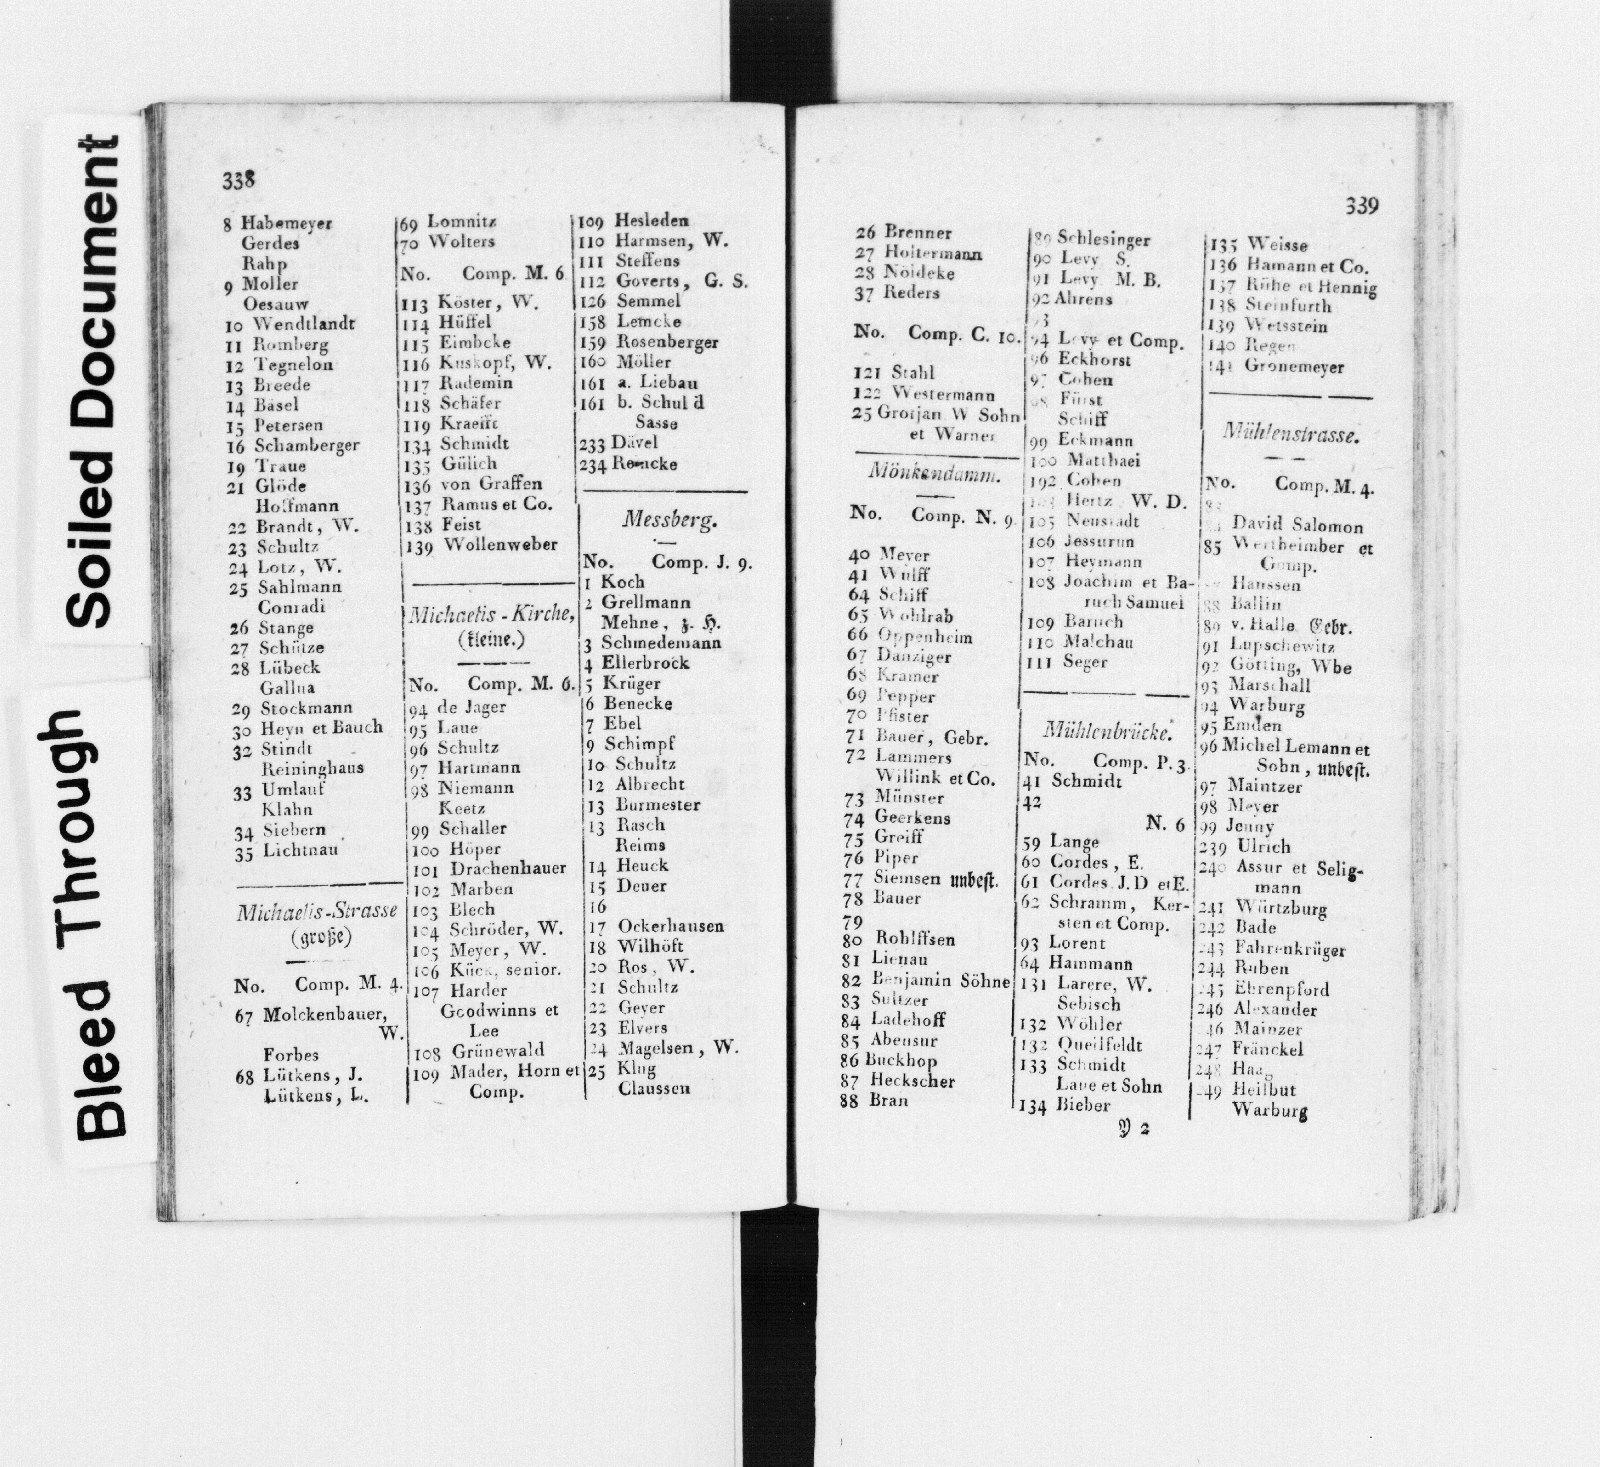 Soiled Document
Bleed Through
338
8 Habemeyer
Gerdes
Rahp
9 Moller
Oesauw
10 Wendtlandt
11 Romberg
12 Tegnelon
13 Breede
14 Basel
15 Petersen
16 Schamberger
19 Traue
21 Glöde
Hoffmann
22 Brandt, W.
23 Schultz
24 Lotz, W.
25 Sahlmann
Conradi
26 Stange
27 Schütze
28 Lübeck
Gallua
29 Stockmann
30 Heyn et Bauch
32 Stindt
Reininghaus
33 Umlauf
Klahn
34 Siebern
35 Lichtnau
Michaelis-Strasse
(große)
No. Comp. M. 4.
67 Molckenbauer,
W.
Forbes
68 Lütkens, J.
Lütkens, L.
69 Lomnitz
70 Wolters
No. Comp. M. 6
113 Köster, W.
114 Hüffel
115 Eimbcke
116 Kuskopf, W.
117 Rademin
118 Schäfer
119 Kraefft
134 Schmidt
135 Gülich
136 von Graffen
137 Ramus et Co.
138 Feist
139 Wollenweber
Michaelis-Kirche,
(kleine.)
No. Comp. M. 6.
94 de Jager
95 Laue
96 Schultz
97 Hartmann
98 Niemann
Keetz
99 Schaller
100 Höper
101 Drachenhauer
102 Marben
103 Blech
104 Schröder, W.
105 Meyer, W.
106 Kück, senior.
107 Harder
Goodwinns et
Lee
108 Grünewald
109 Mader, Horn et
Comp.
109 Hesleden
110 Harmsen, W.
111 Steffens
112 Goverts, G. S.
126 Semmel
158 Lemcke
159 Rosenberger
160 Möller
161 a. Liebau
161 b. Schul d
Sasse
233 Davel
234 Remcke
Messberg.
No. Comp. J. 9.
1 Koch
2 Grellmann
Mehne, z. H.
3 Schmedemann
4 Ellerbrock
5 Krüger
6 Benecke
7 Ebel
9 Schimpf
10 Schultz
12 Albrecht
13 Burmester
13 Rasch
Reims
14 Heuck
15 Deuer
16
17 Ockerhausen
18 Wilhöft
20 Ros, W.
21 Schultz
22 Geyer
23 Elvers
24 Magelsen, W.
25 Klug
Claussen
339
26 Brenner
27 Holtermann
28 Nöldeke
37 Reders
No. Comp. C. 10.
121 Stahl
122 Westermann
25 Grotjan W Sohn
et Warner
Mönkendamm.
No. Comp. N. 9.
40 Meyer
41 Wulff
64 Schiff
65 Wohlrab
66 Oppenheim
67 Danziger
68 Kramer
69 Pepper
70 Pfister
71 Bauer, Gebr.
72 Lammers
Willink et Co.
73 Münster
74 Geerkens
75 Greiff
76 Piper
77 Siemsen unbest.
78 Bauer
79
80 Rohlffsen
81 Lienau
82 Benjamin Söhne
83 Sultzer
84 Ladehoff
85 Abensur
86 Buckhop
87 Heckscher
88 Bran
89 Schlesinger
90 Levy S.
91 Levy M. B.
92 Ahrens
93
94 Levy et Comp.
96 Eckhorst
97 Cohen
98 Fürst
Schiff
99 Eckmann
100 Matthaei
192 Cohen
103 Hertz W. D.
105 Neustadt
106 Jessurun
107 Heymann
108 Joachim et Ba-
ruch Samuel
109 Baruch
110 Malchau
111 Seger
Mühlenbrücke.
No. Comp. P. 3.
41 Schmidt
42
N. 6
59 Lange
60 Cordes, E.
61 Cordes J. D et E.
62 Schramm, Ker-
sten et Comp.
93 Lorent
64 Hammann
131 Larere, W.
Sebisch
132 Wöhler
132 Queilfeldt
133 Schmidt
Laue et Sohn
134 Bieber
Y 2
135 Weisse
136 Hamann et Co.
137 Rühe et Hennig
138 Steinfurth
139 Wetsstein
140 Regen
141 Gronemeyer
Mühlenstrasse.
No. Comp. M. 4.
David Salomon
85 Wertheimber et
Comp.
Hanssen
88 Ballin
89 v. Halle Gebr.
91 Lupschewitz
92 Götting, Wbe
93 Marschall
94 Warburg
95 Emden
96 Michel Lemann et
Sohn, unbest.
97 Maintzer
98 Meyer
99 Jenny
239 Ulrich
240 Assur et Selig-
mann
241 Würtzburg
242 Bade
243 Fahrenkrüger
244 Ruben
245 Ehrenpford
246 Alexander
246 Mainzer
247 Fränckel
248 Haag
249 Heilbut
Warburg